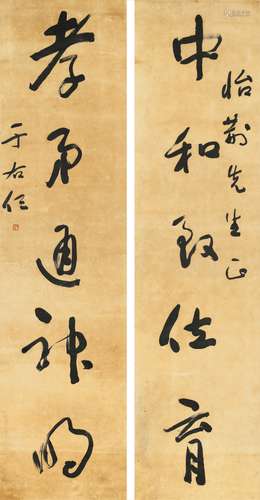 怡荊先生正
中和致位育
孝弟通神明
于右任